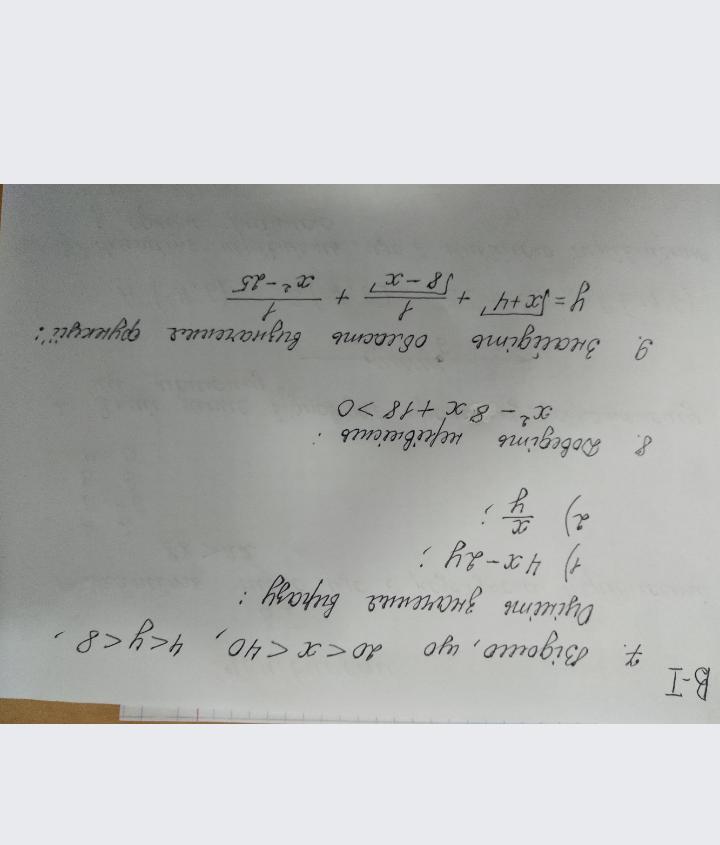 В-І
7. Відомо, що 20 < x < 40, 4 < y < 8,
Оцініть значення виразу:
1) 4x - 2y;
2) x/y;
8. Доведіть нерівність:
x² - 8x + 18 > 0
9. Знайдіть область визначення функції:
y = √(x+4) + 1/√(8-x) + 1/(x²-25)